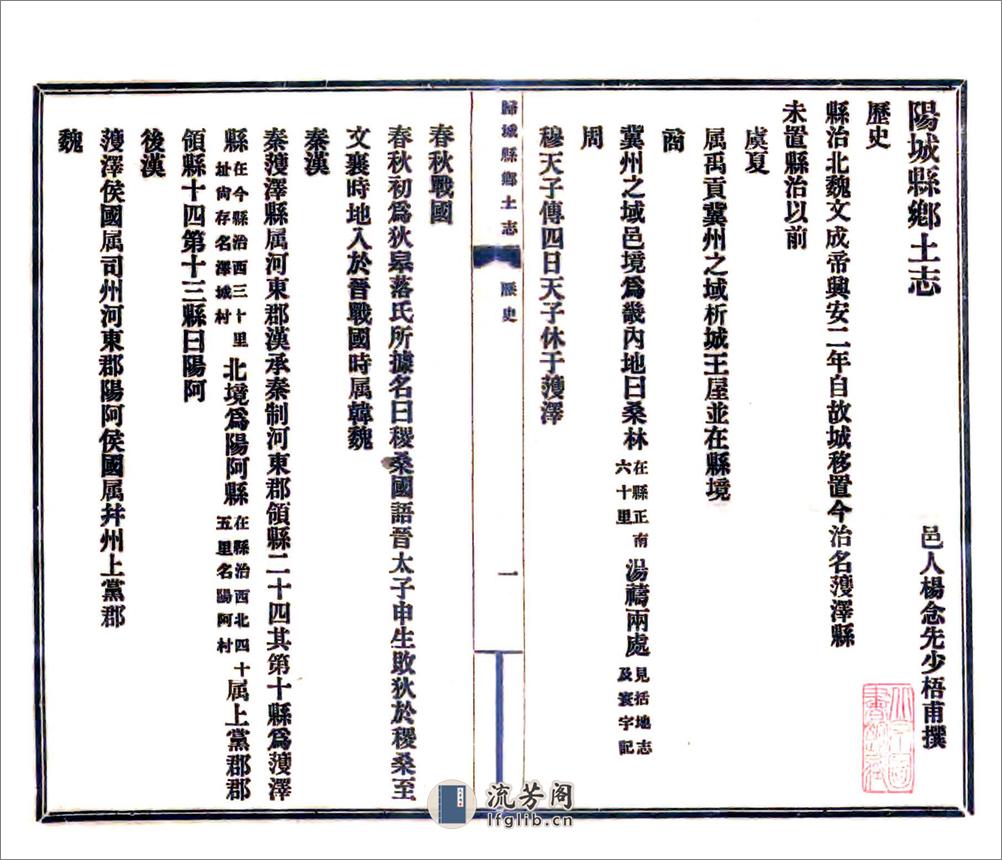 陽城縣鄉土志
邑人楊念先少梧甫撰
歷史
縣治北魏文成帝興安二年自故城移置今治名濩澤縣
未置縣治以前
虞夏
属禹貢冀州之域析城王屋並在縣境
商
冀州之域邑境爲畿內地曰桑林在縣正南六十里湯禱兩處見括地志及寰宇記
周
穆天子傳四日天子休于濩澤
歸城縣鄉土志
歷史
一
春秋戰國
春秋初爲狄皋落氏所據名曰稷桑國語晉太子申生敗狄於稷桑至
文襄時地入於晉戰國時属韓魏
秦漢
秦濩澤縣属河東郡漢承秦制河東郡領縣二十四其第十縣爲濩澤
縣在今縣治西三十里址尙存名澤城村北境爲陽阿縣在縣治西北四十五里名陽阿村属上黨郡郡
領縣十四第十三縣曰陽阿
後漢
濩澤侯國属司州河東郡陽阿侯國属幷州上黨郡
魏
流芳阁
lfglib.cn